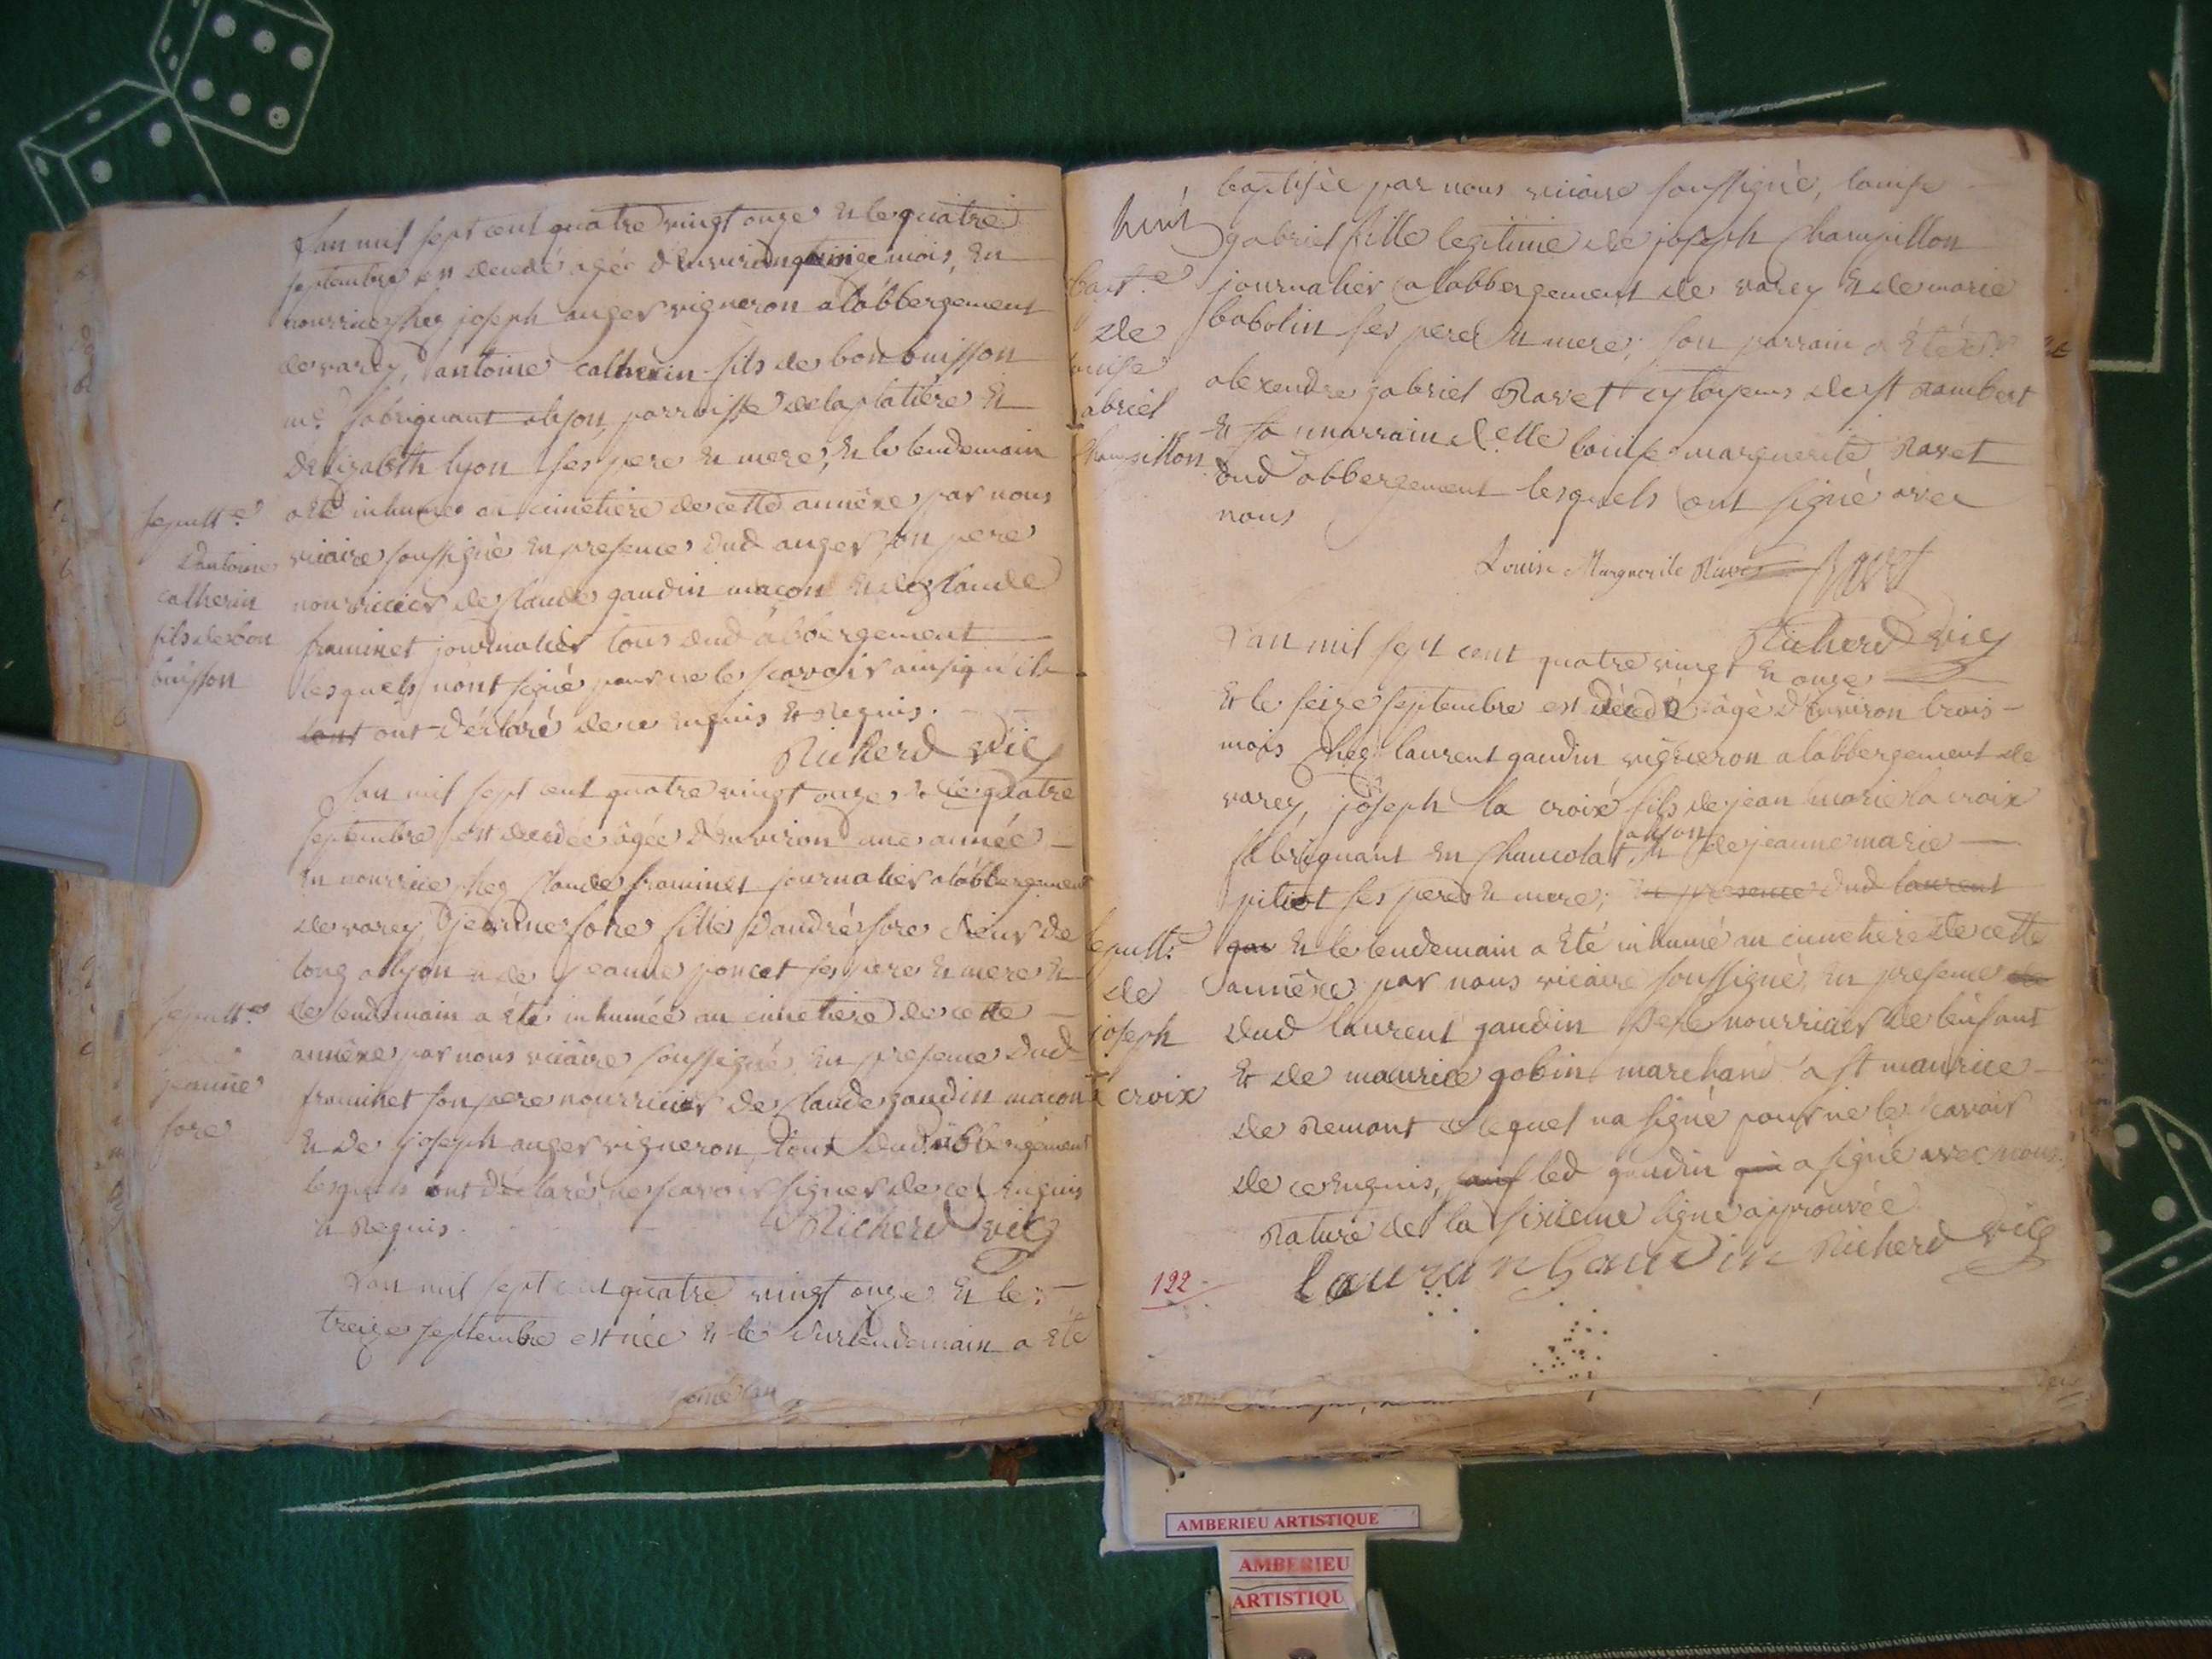 Lan mil sept cent quatre vingt onze & le quatre
septembre est decedé agé d'environ quinze mois, en
nourrice chez joseph auger vigneron a labbergement
de varey, antoine catherin fils de bon buisson
md fabriquant a lyon, parroisse de la platière &
d'elizabeth lyon ses pere & mere, & le lendemain
a été inhumé au cimetiere de cette annéxe par nous
vicaire soussigné en presence dud auger son pere
nourricier de claude gaudin macon & de claude
framinet journalier tous dud abbergement
lesquels n'ont signé pour ne le scavoir ainsi qu'ils
lont ont déclaré de ce enquis & requis.
Richerd vic
sepult.e
d'antoine
catherin
fils de bon
buisson
Lan mil sept cent quatre vingt onze & le quatre
septembre est decedée agée d'environ une année
en nourrice chez claude framinet journalier a labbergement
de varey, jeanne fore fille d'andré fore tireur de
long a lyon & de jeanne poncet ses pere & mere &
le lendemain a été inhumée au cimetiere de cette
annéxe par nous vicaire soussigné en presence dud
framinet son pere nourricier de claude gaudin macon
& de joseph auger vigneron, tout dud abbergement
lesquels ont déclaré ne scavoir signer de ce enquis
& requis.
Richerd vic
sepult.e
jeanne
fore
Lan mil sept cent quatre vingt onze & le
treize septembre est née & le surlendemain a été
baptisée par nous vicaire soussigné, louise
gabriel fille legitime de joseph champillon
journalier a labbergement de varey & de marie
bobolin ses pere & mere; son parrain a été sr
alexendre gabriel Ravet cytoyens de st rambert
& sa marraine delle louise marguerite Ravet
dud abbergement lesquels ont signé avec
nous
Louise Marguerite Ravet
Ravet
Richerd vic
bapt.e
de
ouise
abriel
champillon
L'an mil sept cent quatre vingt & onze
& le seize septembre est décedé agé d'environ trois
mois chez laurent gaudin vigneron a labbergement de
varey, joseph la croix fils de jean marie la croix
a lyon
fabriquant en chaucolat, & de jeanne marie
pitiot ses pere & mere; en presence dud laurent
gau & le lendemain a été inhumé au cimetiere de cette
annéxe par nous vicaire soussigné, en presence de
dud laurent gaudin pere nourricier de l'enfant
& de maurice gobin marchand a st maurice
de Remant lequel na signé pour ne le scavoir
de ce enquis, sauf led gaudin qui a signé avec nous.
Rature de la sixieme ligne approuvée
lauran Gaudin Richerd vic
sepult.e
de
joseph
croix
122
AMBERIEU ARTISTIQUE
AMBERIEU
ARTISTIQU